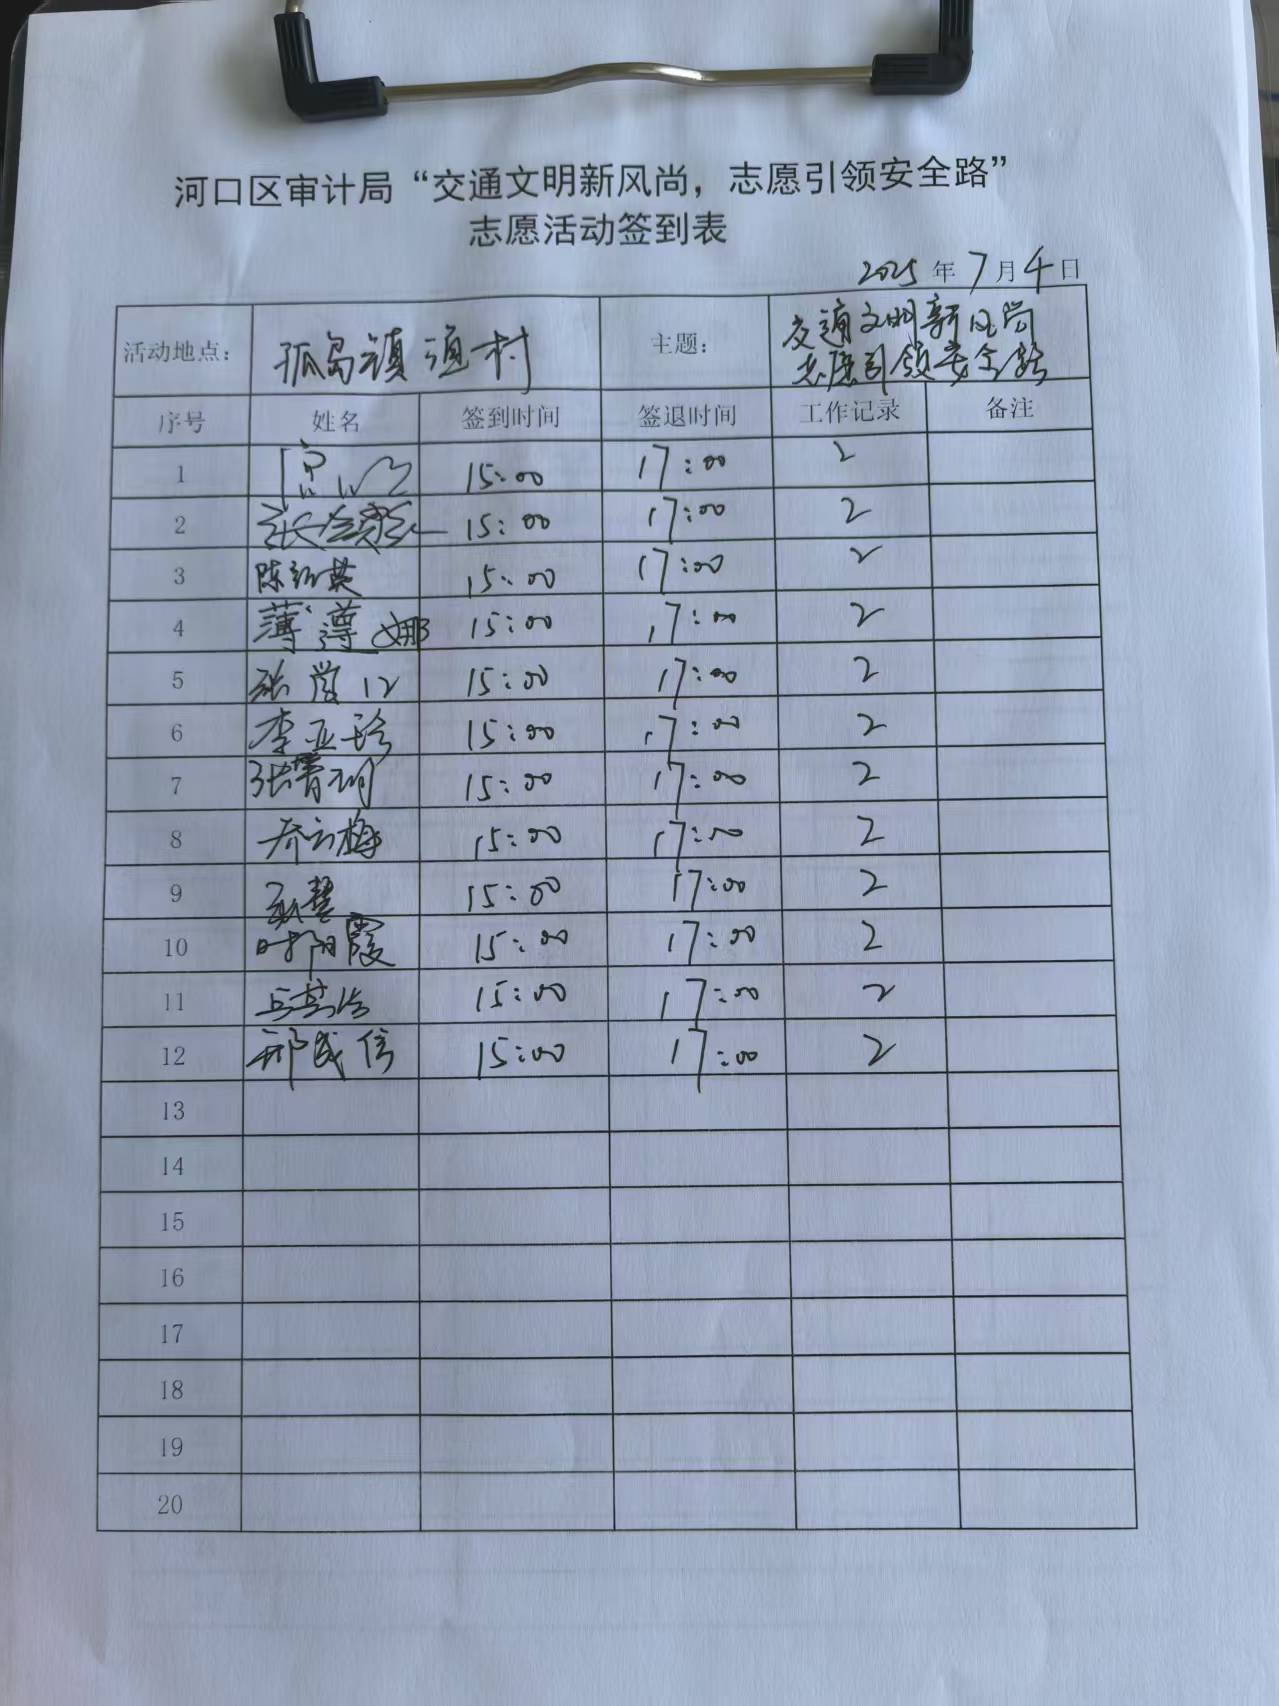 河口区审计局“交通文明新风尚，志愿引领安全路”
志愿活动签到表
2025年7月4日
活动地点： 孤岛镇渔村 主题： 交通文明新风尚
志愿引领安全路
序号 姓名 签到时间 签退时间 工作记录 备注
1 15:00 17:00 2
2 张 15:00 17:00 2
3 陈 英 15:00 17:00 2
4 薄遵娜 15:00 17:00 2
5 张 15:00 17:00 2
6 李亚珍 15:00 17:00 2
7 张 15:00 17:00 2
8 乔云梅 15:00 17:00 2
9 15:00 17:00 2
10 时阳霞 15:00 17:00 2
11 15:00 17:00 2
12 邢民信 15:00 17:00 2
13
14
15
16
17
18
19
20